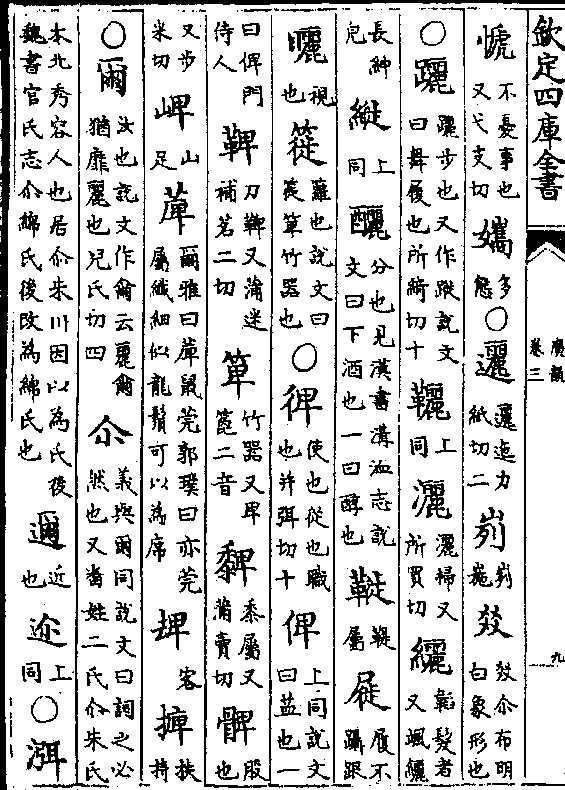 欽定四庫全書
廣韻
卷三
九
㥴不憂事也又弋支切孈多態○邐邐迤力紙切二峛峛崺㸚㸚尒布明白象形也
○躧躧步也又作蹝說文曰舞履也所綺切十 上同灑灑掃又所買切纚韜髮者又颯纚
長紳皃縰上同釃分也見漢書溝洫志說文曰下酒也一曰醇也 鞮屬屣履不躡跟
矖視也簁籮也說文曰簁箄竹器也○𢔌使也從也職也并弭切十俾上同說文曰益也一
曰俾門侍人鞞刀鞞又蒲迷補茗二切箄竹器又卑箆二音䵗黍屬又蒲賣切髀股也
又步米切崥山足萆爾雅曰萆鼠莞郭璞曰亦莞屬纖細似龍鬚可以為席 扶持
○爾汝也說文作爾云麗爾猶靡麗也兒氏切四尒義與爾同說文曰詞之必然也又虜姓二氏尒朱氏
本北秀容人也居尒朱川因以為氏後魏書官氏志尒綿氏後改為綿氏也邇近也迩上同○渳